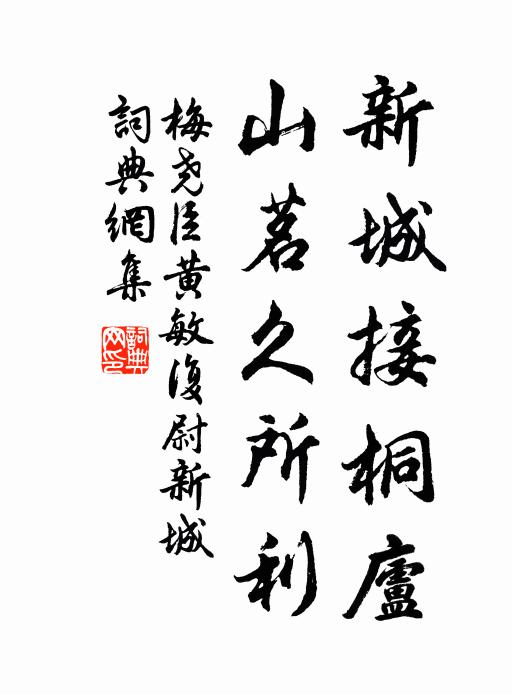 新城接桐廬
山茗久所利
梅尧臣黄敏復尉新城
詞典網集
詞典网印